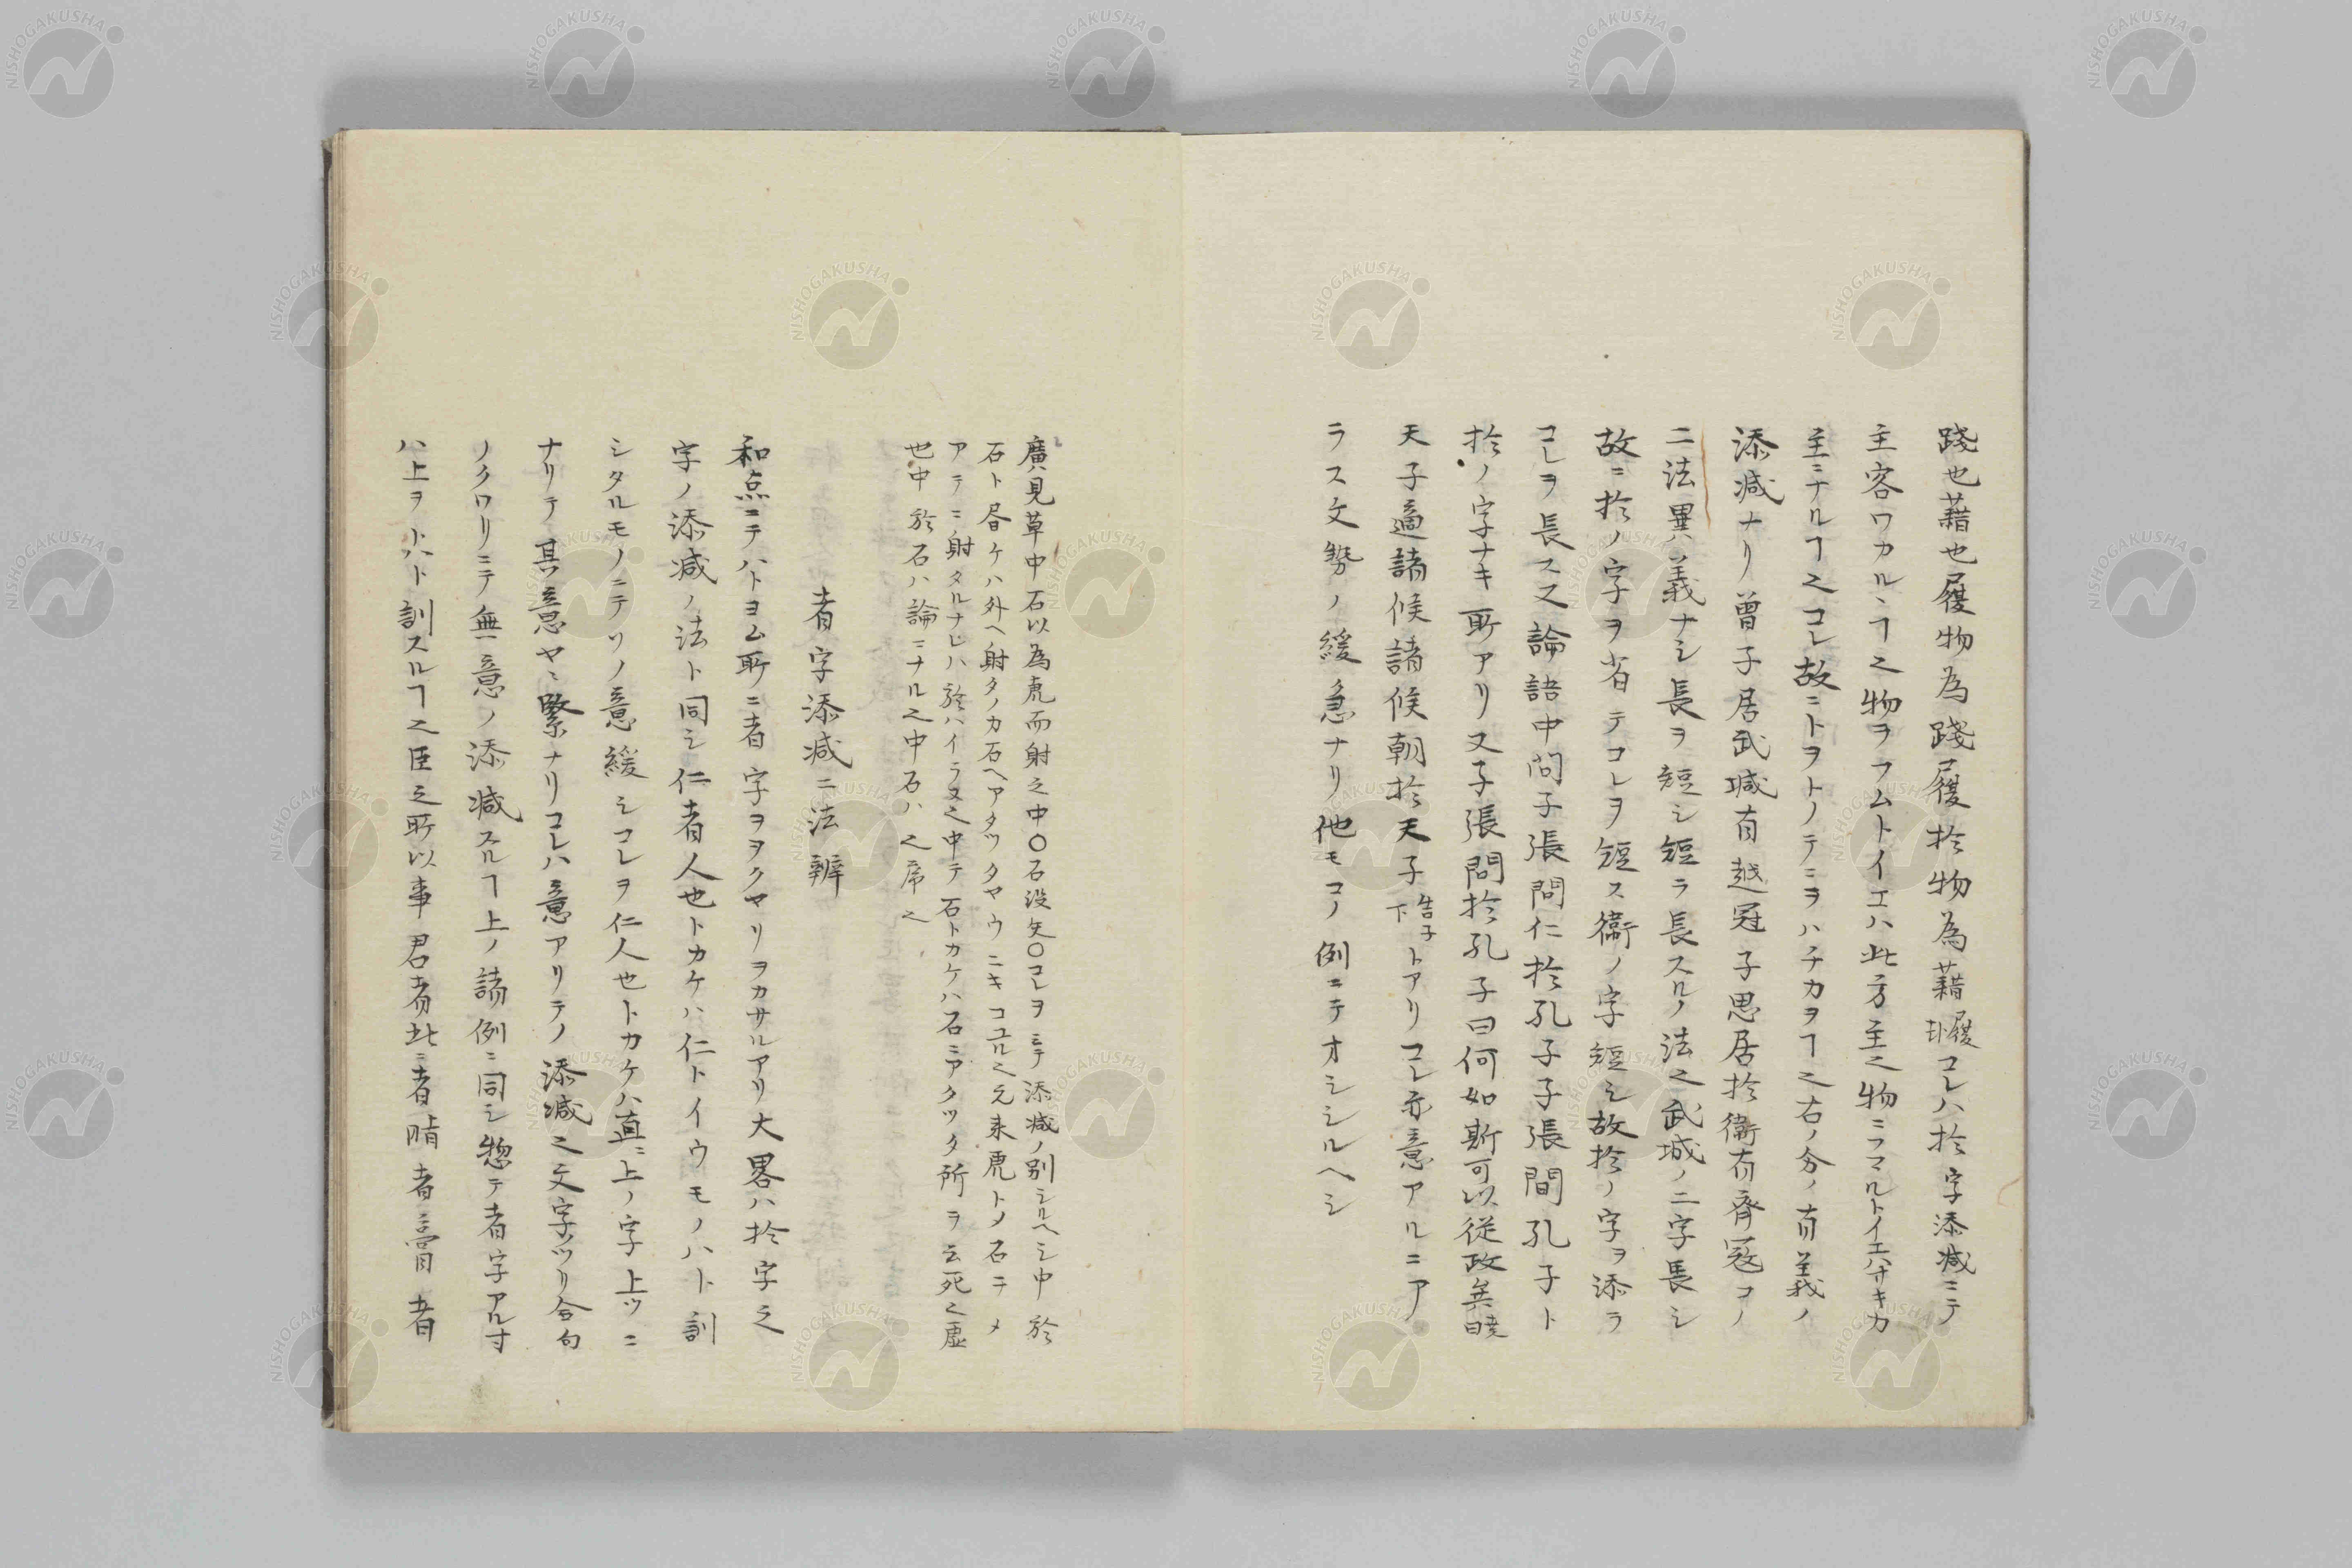 踐也藉也履物為踐履於物為藉履卦コレハ於字添減ニテ
主客ワカルヽヿ之物ヲフムトイエハ此方主之物ニフマルトイエハサキカ
主ニナルヿ之コレ故ニトヲトノテニヲハチカヲヿ之右ノ分ノ有義ノ
添減ナリ曾子居武城有越冠子思居於衛有齊冦コノ
二法異義ナシ長ヲ短シ短ラ長スルノ法之武城ノ二字長シ
故ニ於ノ字ヲ省テコレヲ短ス衞ノ字短シ故於ノ字ヲ添ラ
コレヲ長ス又論語中問子張問仁於孔子子張問孔子ト
於ノ字ナキ所アリ又子張問於孔子曰何如斯可以従政矣堯曰
天子適諸侯諸侯朝於天子告子下トアリコレ亦意アルニア
ラス文勢ノ緩急ナリ他モコノ例ニテオシシルヘシ
廣見草中石以為虎而射之中〇石没矢〇コレヲミテ添減ノ別シルヘシ中於
石ト昏ケハ外ヘ射タノカ石ヘアタツタヤウニキコユル之元来虎トメ石ヲメ
アテニ射タルナレハ於ハイラヌ之中テ石トカケハ石ニアタツタ所ヲ云死之虚
也中於石ハ論ニナル之中石ハ之序之
者字添减二法辨
和点ニテハトヨム所ニ者字ヲヲクヤリヲカサルアリ大畧ハ於字之
字ノ添减ノ法ト同シ仁者人也トカケハ仁トイウモノハト訓
シタルモノニテツノ意緩シコレヲ仁人也トカケハ直ニ上ノ字上ツニ
ナリテ其意ヤヽ緊ナリコレハ意アリテノ添减之文字ツリ合句
ノクワリニテ無意ノ添減スルヿ上ノ諸例ニ同シ惣テ者字アル寸
ハ上ヲトハト訓スルヿ之臣之所以事君者此ニ者階者膏者